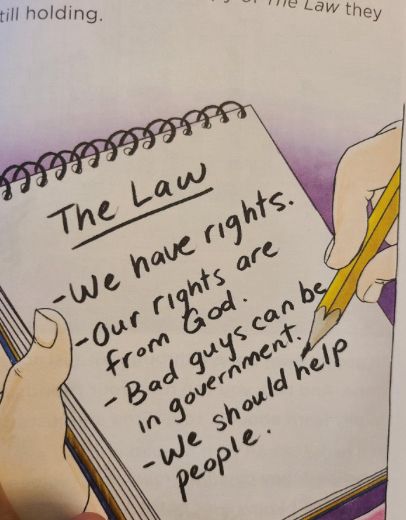 The Law they
till holding.
The Law
-We have rights.
-Our rights are
from God.
- Bad guys can be
in government.
-We should help
people.